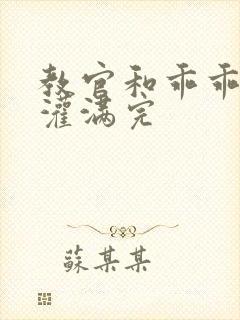 教官和乖乖
灌满完
蘇某某